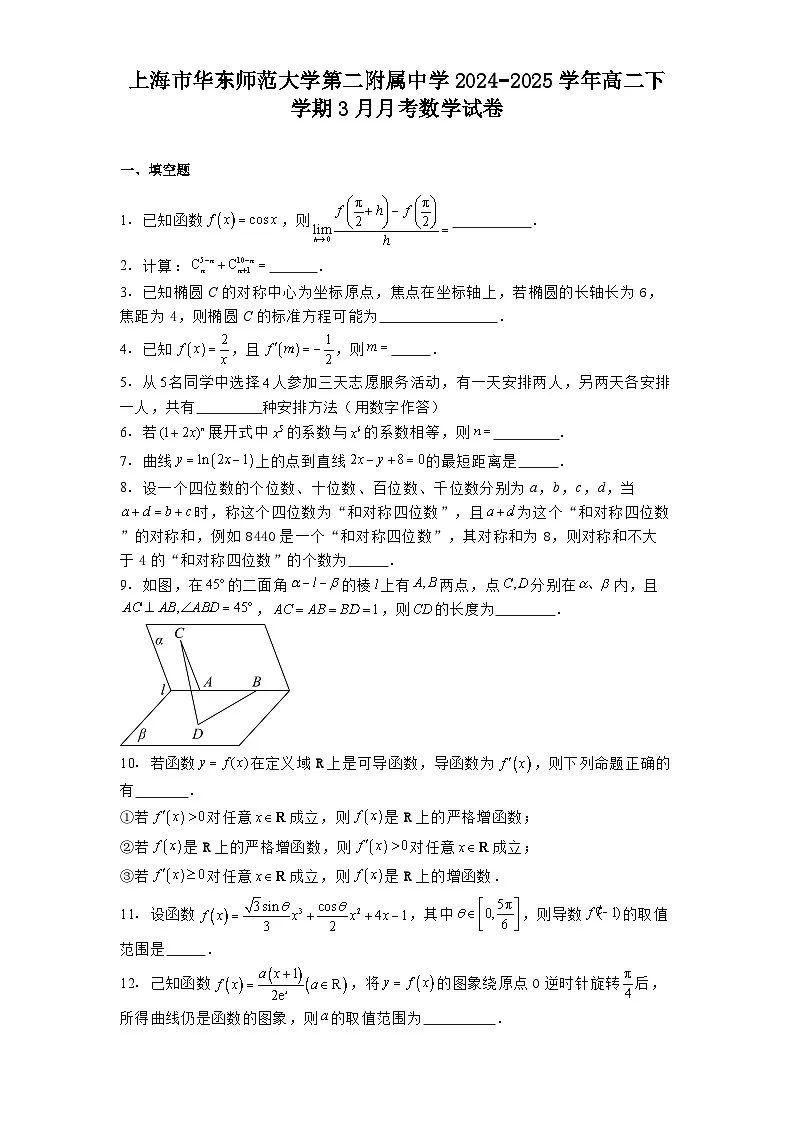 上海市华东师范大学第二附属中学 2024-2025 学年高二下
学期 3 月月考数学试卷
一、填空题
1. 已知函数 f(x)=cos x，则 lim_{h→0} [f(π/2+h)−f(π/2)]/h = ________.
2. 计算：C_n^{5−n}+C_{n+1}^{10−n}= ______.
3. 已知椭圆 C 的对称中心为坐标原点，焦点在坐标轴上，若椭圆的长轴长为 6，
焦距为 4，则椭圆 C 的标准方程可能为 ________.
4. 已知 f(x)=2/x，且 f′(m)=−1/2，则 m= ____.
5. 从 5名同学中选择 4 人参加三天志愿服务活动，有一天安排两人，另两天各安排
一人，共有 ______ 种安排方法（用数字作答）
6. 若 (1+2x)^n 展开式中 x^5 的系数与 x^6 的系数相等，则 n= ______.
7. 曲线 y=ln(2x−1) 上的点到直线 2x−y+8=0 的最短距离是 ____.
8. 设一个四位数的个位数、十位数、百位数、千位数分别为 a，b，c，d，当
a+d=b+c 时，称这个四位数为“和对称四位数”，且 a+d 为这个“和对称四位数
”的对称和，例如 8440 是一个“和对称四位数”，其对称和为 8，则对称和不大
于 4 的“和对称四位数”的个数为 ____.
9. 如图，在 45° 的二面角 α−l−β 的棱 l 上有 A,B 两点，点 C,D 分别在 α、β 内，且
AC⊥AB,∠ABD=45°，AC=AB=BD=1，则 CD 的长度为 ______.
α C
l A B
β D
10. 若函数 y=f(x) 在定义域 R 上是可导函数，导函数为 f′(x)，则下列命题正确的
有 ______.
①若 f′(x)>0 对任意 x∈R 成立，则 f(x) 是 R 上的严格增函数；
②若 f(x) 是 R 上的严格增函数，则 f′(x)>0 对任意 x∈R 成立；
③若 f′(x)≥0 对任意 x∈R 成立，则 f(x) 是 R 上的增函数.
11. 设函数 f(x)=(√3sinθ/3)x^3+(cosθ/2)x^2+4x−1，其中 θ∈[0,5π/6]，则导数 f′(−1) 的取值
范围是 ____.
12. 己知函数 f(x)=a(x+1)/(2e^x)(a∈R)，将 y=f(x) 的图象绕原点 O 逆时针旋转 π/4 后，
所得曲线仍是函数的图象，则 a 的取值范围为 ______.